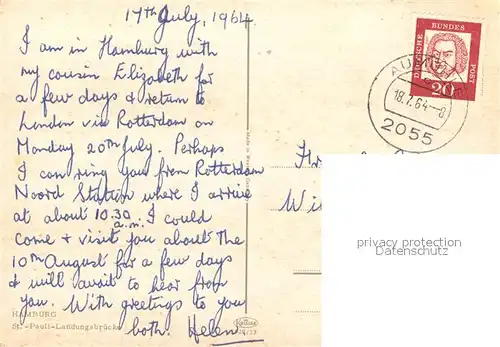 17th July, 1964
I am in Hamburg with
my cousin Elizabeth for
a few days & return to
London via Rotterdam on
Monday 20th July. Perhaps
I can ring you from Rotterdam
Noord Station where I arrive
at about 10.30 a.m. I could
come & visit you about the
10th August for a few days
& will await to hear from
you. With greetings to you
both. Helen
HAMBURG
St.-Pauli-Landungsbrücke
DEUTSCHE
BUNDES
POST
20
18.7.64-8
2055
privacy protection
Datenschutz